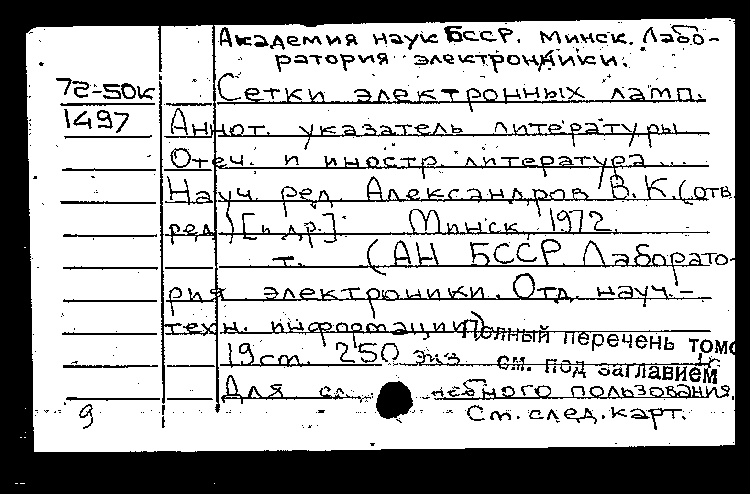 Академия наук БССР. Минск. Лабо-
ратория электронники.
72-50к
Сетки электронных ламп.
1497
Аннот. указатель литературы
Отеч. и иностр. литература...
Науч. ред. Александров В.К. (отв.
ред.) [и др.]. Минск, 1972.
т. (АН БССР. Лаборато-
рия электроники. Отд. науч.-
техн. информации)
Полный перечень томо
19 cm. 250 экз.
см. под заглавием
Для сл небного пользования.
9
См. след. карт.